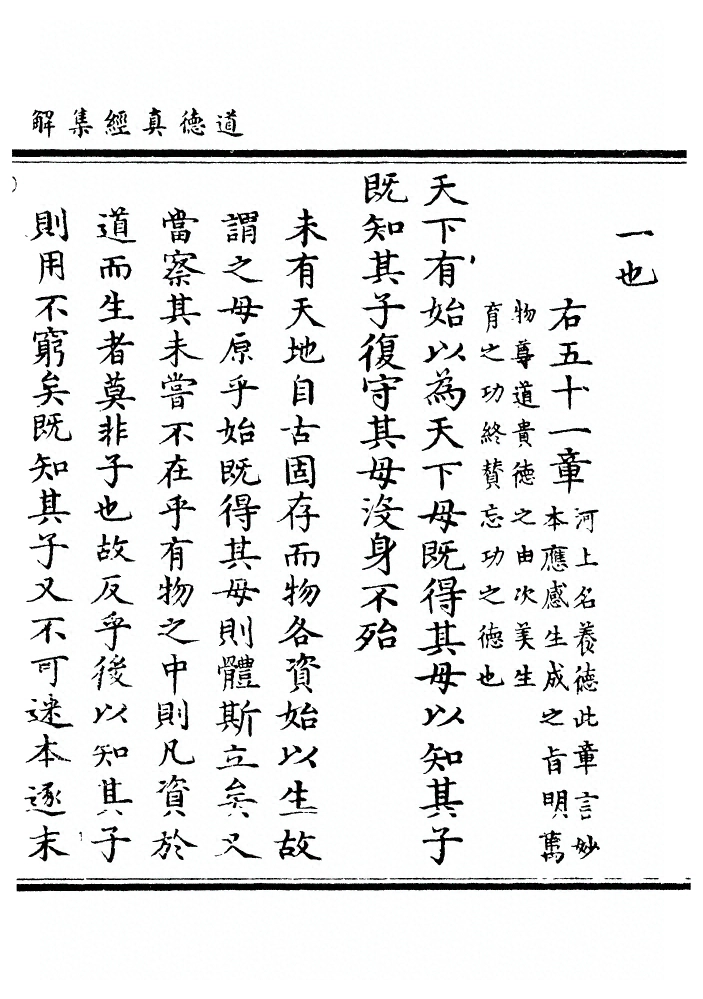 道德真經集解
一也
右五十一章
河上名養德此章言妙
本應感生成之旨明萬
物尊道貴德之由次美生
育之功終贊忘功之德也
天下有始以為天下母既得其母以知其子
既知其子復守其母沒身不殆
未有天地自古固存而物各資始以生故
謂之母原乎始既得其母則體斯立矣又
當察其未嘗不在乎有物之中則凡資於
道而生者莫非子也故反乎後以知其子
則用不窮矣既知其子又不可逮本逐末